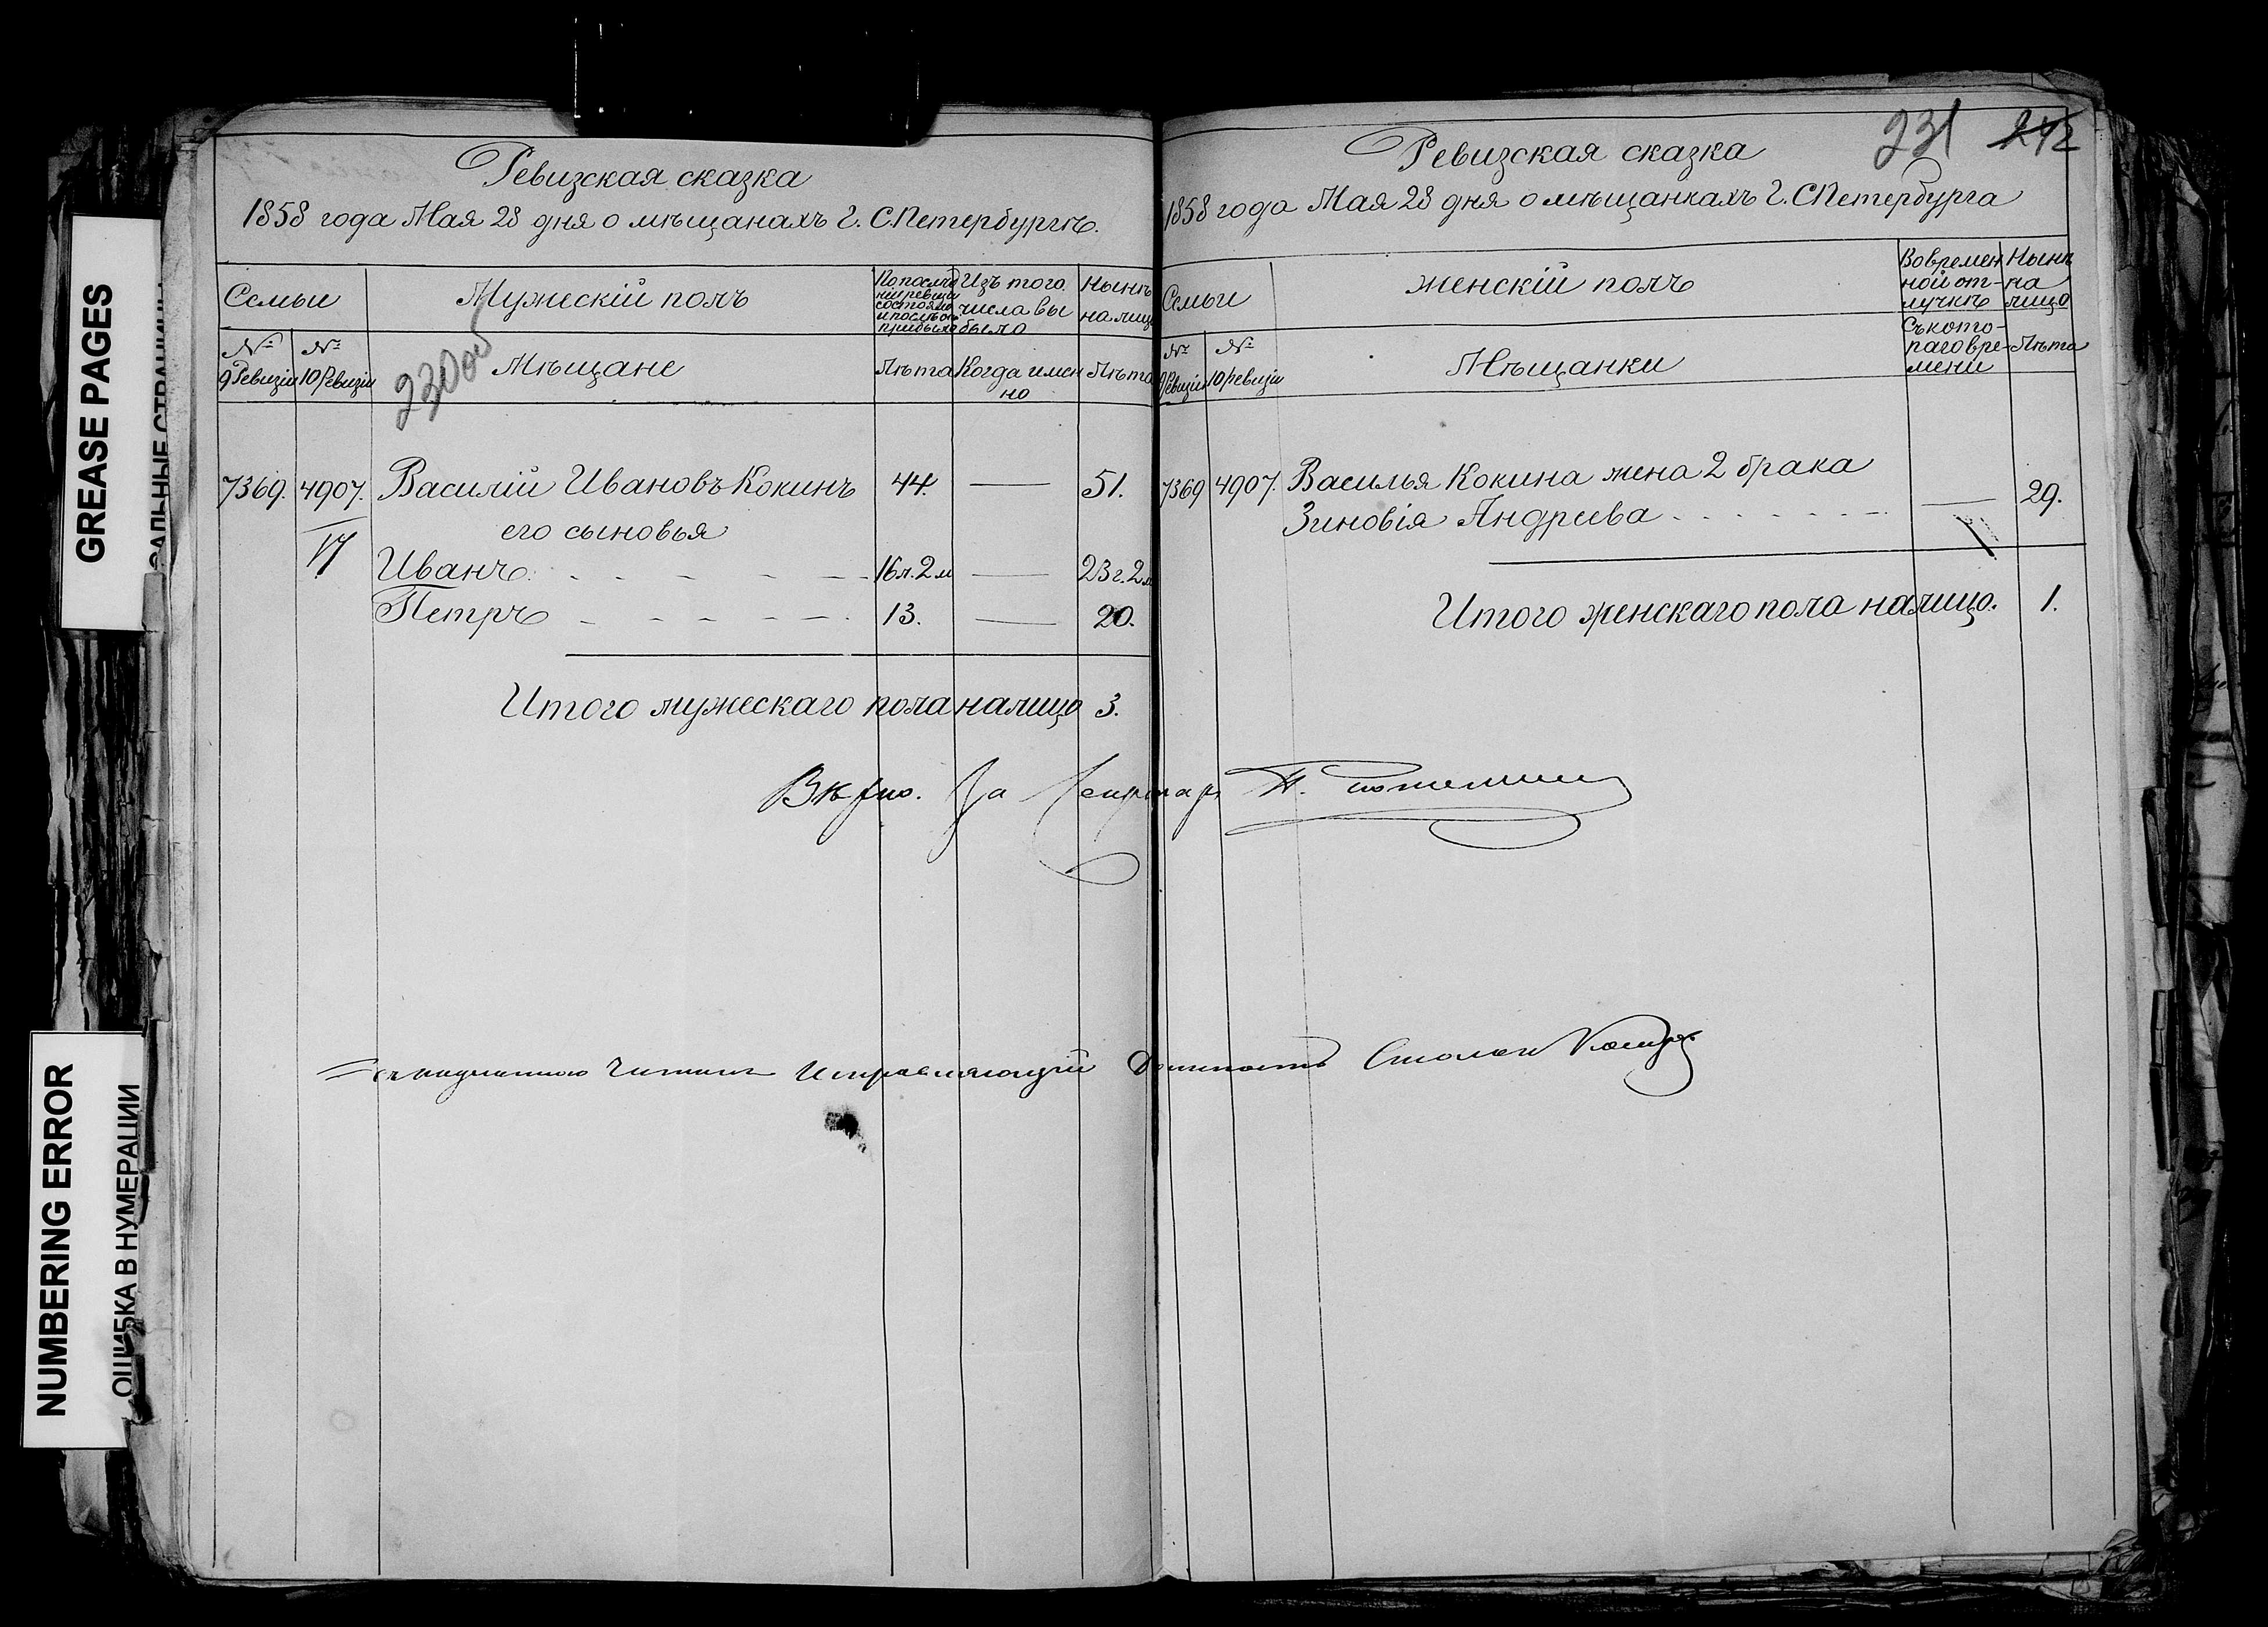 GREASE PAGES
NUMBERING ERROR
ОШИБКА В НУМЕРАЦИИ
Ревизская сказка
1858 года Мая 28 дня о мѣщанахъ г. С.Петербургѣ.
Семьи
Мужескій полъ
По послѣд
ней ревизіи
состояло
и послѣ он
прибыло
Изъ того
числа вы
было
Нынѣ
на лицо
№
9 Ревизіи
№
10 Ревизіи
230 об
Мѣщане
Лѣта
Когда имен
но
Лѣта
7369. 4907. Василій Ивановъ Кокинъ 44. — 51.
его сыновья
Иванъ 16 л. 2 м — 23 г. 2 м
Петръ 13. — 20.
Итого мужескаго пола налицо 3.
231 242
Ревизская сказка
1858 года Мая 28 дня о мѣщанкахъ г. СПетербурга
Семьи
женскій полъ
Во времен
ной от-
лучкѣ
Нынѣ
на
лицо
№
9 Ревизіи
№
10 ревизіи
Мѣщанки
Съ кото-
раго вре-
мени
Лѣта
7369 4907. Василья Кокина жена 2 брака
Зиновія Андреева — 29.
Итого женскаго пола налицо. 1.
Вѣрно. За Секретаря
Съ подлиннымъ читалъ Исправляющій Должность